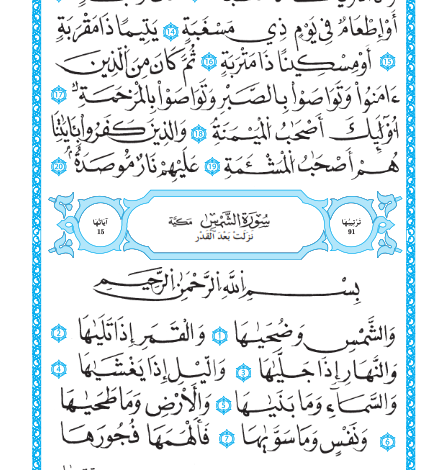 أَوْ إِطْعَامٌ فِي يَوْمٍ ذِي مَسْغَبَةٍ 14 يَتِيمًا ذَا مَقْرَبَةٍ
15 أَوْ مِسْكِينًا ذَا مَتْرَبَةٍ 16 ثُمَّ كَانَ مِنَ ٱلَّذِينَ
ءَامَنُواْ وَتَوَاصَوْاْ بِالصَّبْرِ وَتَوَاصَوْاْ بِالْمَرْحَمَةِ 17
أُوْلَٰٓئِكَ أَصْحَٰبُ ٱلْمَيْمَنَةِ 18 وَالَّذِينَ كَفَرُواْ بِـَٔايَٰتِنَا
هُمْ أَصْحَٰبُ ٱلْمَشْـَٔمَةِ 19 عَلَيْهِمْ نَارٌ مُّوصَدَةٌ 20
ترتيبها 91
سُورَةُ الشَّمْسِ مَكِّيَّة
نزلت بعد القدر
آياتها 15
بِسْمِ ٱللَّهِ ٱلرَّحْمَٰنِ ٱلرَّحِيمِ
وَالشَّمْسِ وَضُحَىٰهَا 1 وَالْقَمَرِ إِذَا تَلَىٰهَا 2
وَالنَّهَارِ إِذَا جَلَّىٰهَا 3 وَالَّيْلِ إِذَا يَغْشَىٰهَا 4
وَالسَّمَآءِ وَمَا بَنَىٰهَا 5 وَالْأَرْضِ وَمَا طَحَىٰهَا
6 وَنَفْسٍ وَمَا سَوَّىٰهَا 7 فَأَلْهَمَهَا فُجُورَهَا